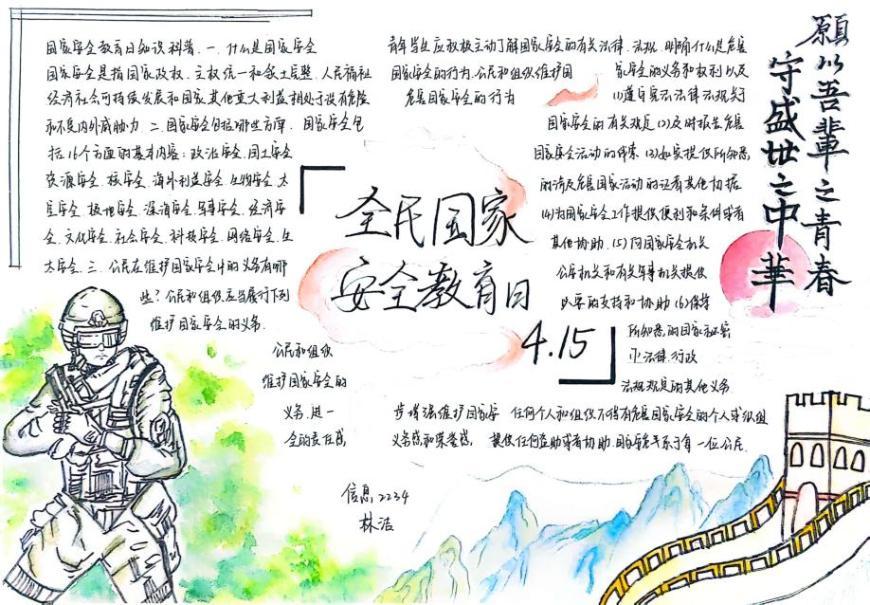 国家安全教育日知识科普.一.什么是国家安全
国家安全是指国家政权、主权统一和领土完整、人民福祉
经济社会可持续发展和国家其他重大利益相对处于没有危险
和不受内外威胁力.二.国家安全包括哪些方摩.国家安全包
括16个方面的基本内容:政治安全.国土安全
资源安全.核安全.海外利益安全.生物安全.太
空安全.极地安全.深海安全.军事安全.经济安
全.文化安全.社会安全.科技安全.网络安全.生
太安全.三.公民在维护国家安全中的义务有哪
些?公民和组织应当履行下列
维护国家安全的义务.
公民和组织
维护国家安全的
义务.进一
全的责任感
步增强维护国家安
义务感和荣誉感.
青年学生应积极主动了解国家安全的有关法律、法规.明确什么是危害
国家安全的行为.公民和组织维护国
家安全的义务和权利以及
危害国家安全的行为
(1)遵守宪法法律法规关于
国家安全的有关规定(2)及时报告危害
国家安全活动的线索.(3)如实提供所知悉
的涉及危害国家活动的证有其他协据
(4)为国家安全工作提供便利和条件或有
其他协助.(5)向国家安全机关
公安机关和有关军事机关提供
必要的支持和协助(6)保持
所知悉的国家秘密
(7)法律.行政
法规规定的其他义务
任何个人和组织不得有危害国家安全的个人或组织
提供任何资助或有协助.国家安全关系于每一位公民.
全民国家
安全教育日
4.15
願以吾輩之青春
守盛世之中華
信息2234
林洁